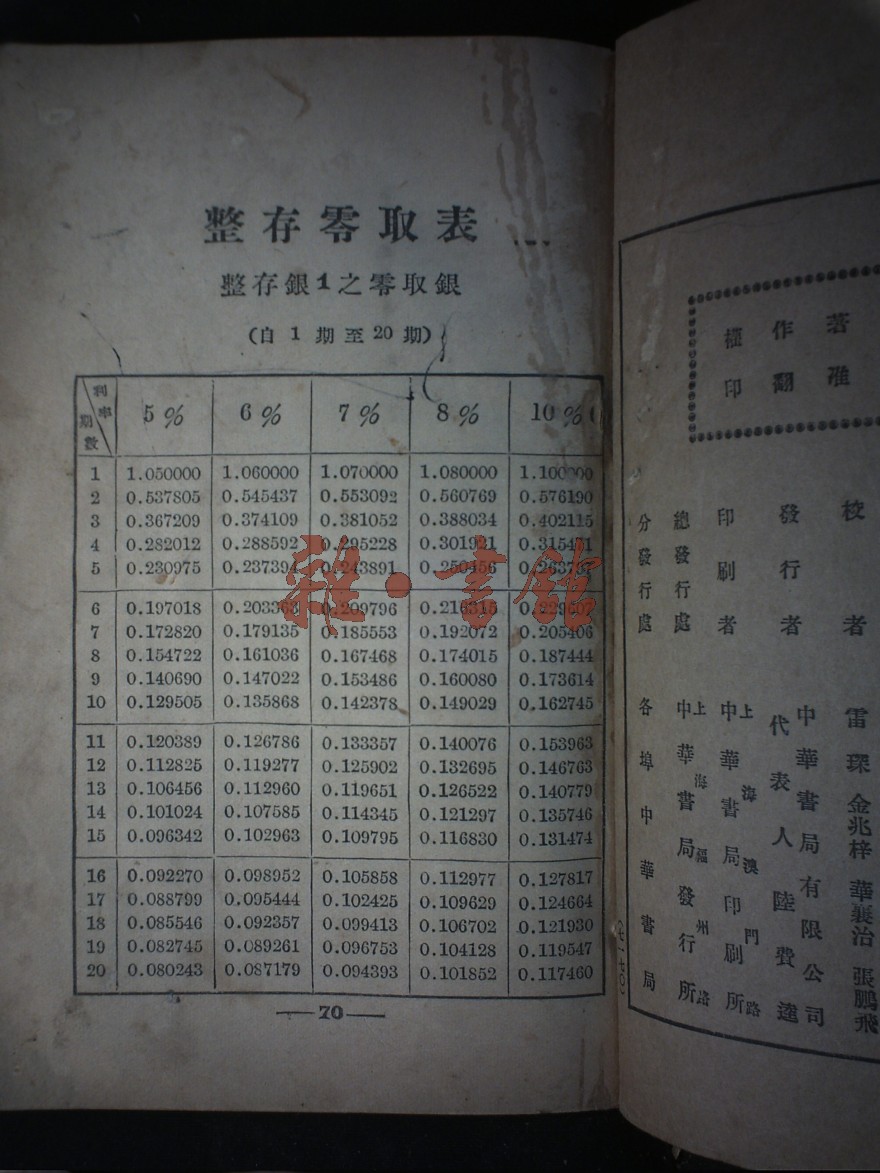 整存零取表
整存銀1之零取銀
(自 1 期至 20 期)
利率 期數 5% 6% 7% 8% 10%
1 1.050000 1.060000 1.070000 1.080000
2 0.537805 0.545437 0.553092 0.560769 0.576190
3 0.367209 0.374109 0.381052 0.388034 0.402115
4 0.282012 0.288592 0.295228 0.301921
5 0.230975 0.237394 0.243891 0.250456
6 0.197018 0.203363 0.209796 0.216315 0.229607
7 0.172820 0.179135 0.185553 0.192072 0.205406
8 0.154722 0.161036 0.167468 0.174015 0.187444
9 0.140690 0.147022 0.153486 0.160080 0.173614
10 0.129505 0.135868 0.142378 0.149029 0.162745
11 0.120389 0.126786 0.133357 0.140076 0.153963
12 0.112825 0.119277 0.125902 0.132695 0.146763
13 0.106456 0.112960 0.119651 0.126522 0.140779
14 0.101024 0.107585 0.114345 0.121297 0.135746
15 0.096342 0.102963 0.109795 0.116830 0.131474
16 0.092270 0.098952 0.105858 0.112977 0.127817
17 0.088799 0.095444 0.102425 0.109629 0.124664
18 0.085546 0.092357 0.099413 0.106702 0.121930
19 0.082745 0.089261 0.096753 0.104128 0.119547
20 0.080243 0.087179 0.094393 0.101852 0.117460
70
雜·書館
著作權
印
校者 雷琛 金兆梓 華襄治 張鵬飛
發行者 中華書局有限公司
代表人 陸費逵
印刷者 上海澳門路
中華書局印刷所
總發行處 上海福州路
中華書局發行所
分發行處 各埠中華書局